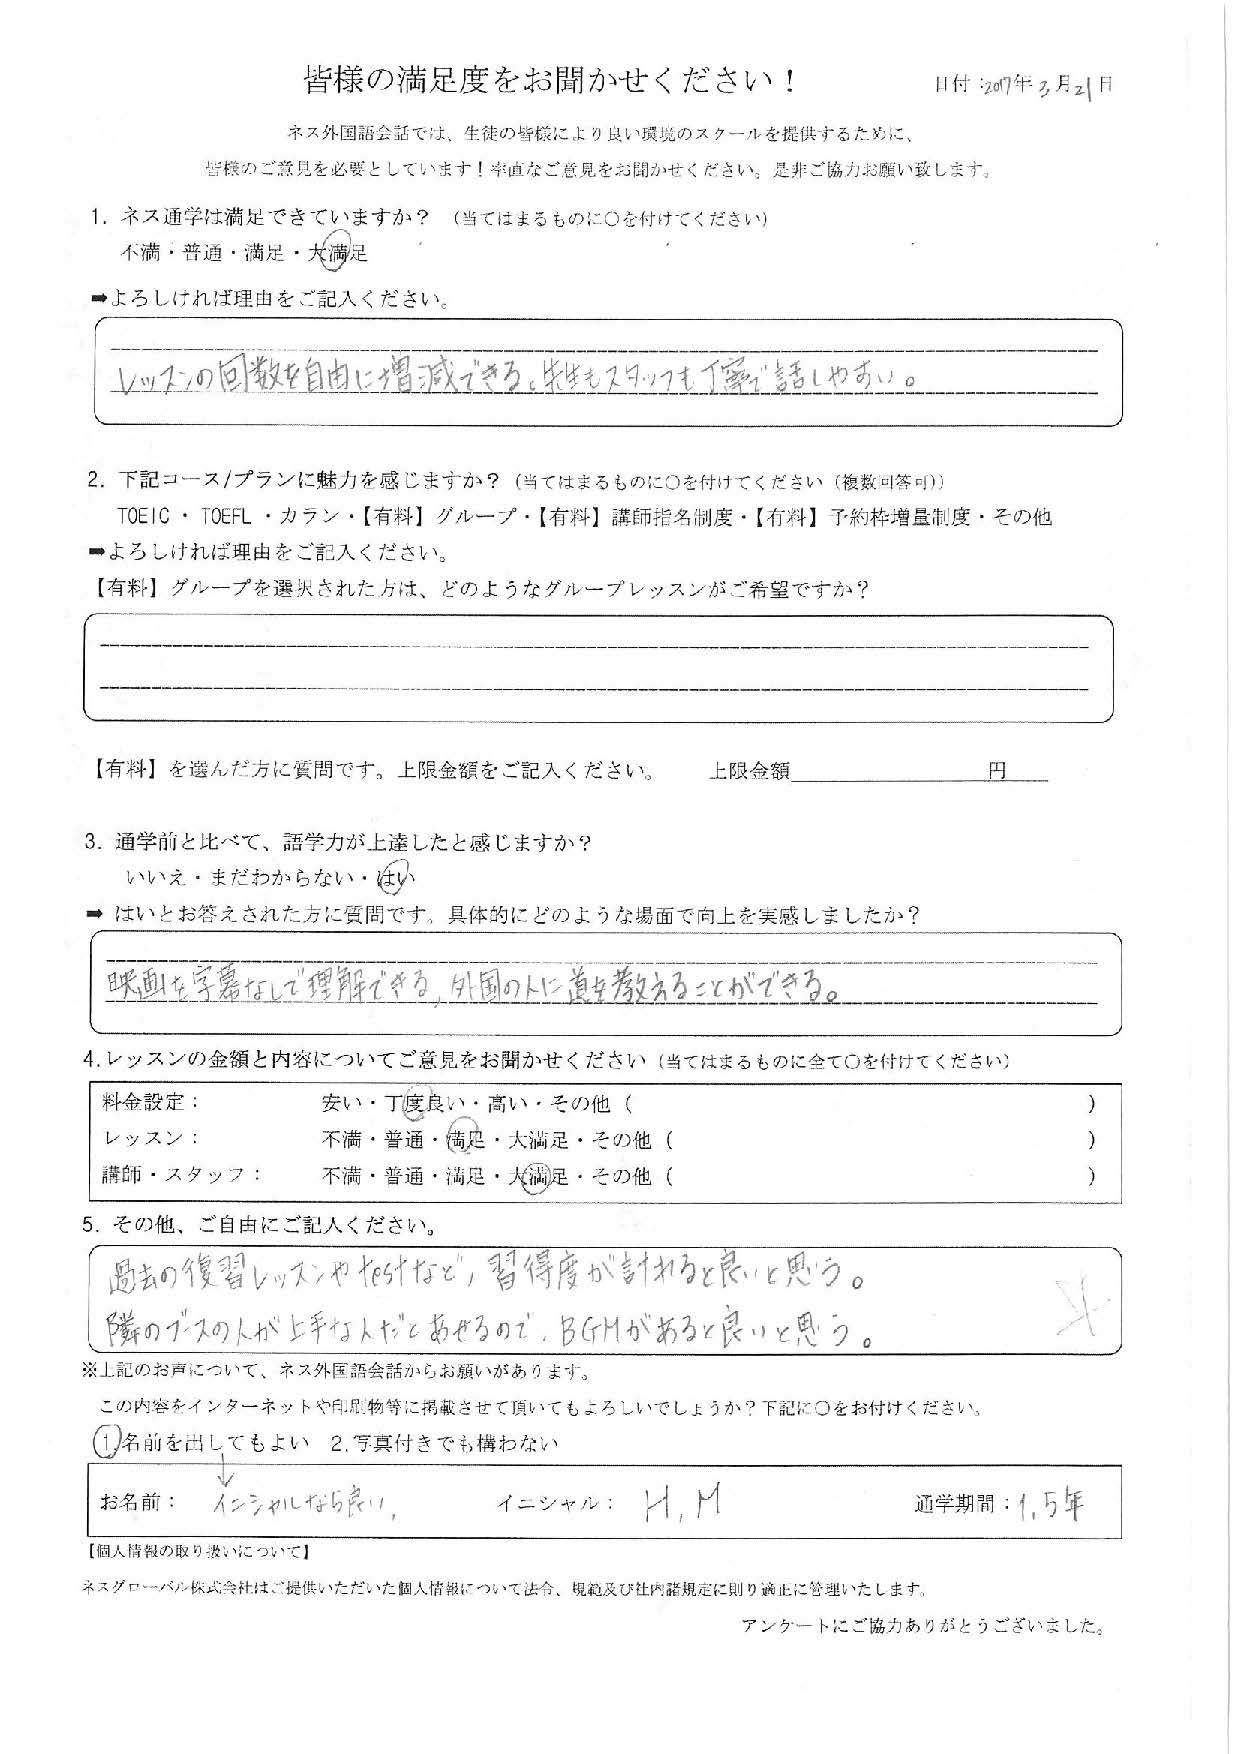 皆様の満足度をお聞かせください！
日付：2017年3月21日
ネス外国語会話では、生徒の皆様により良い環境のスクールを提供するために、
皆様のご意見を必要としています！率直なご意見をお聞かせください。是非ご協力お願い致します。
1. ネス通学は満足できていますか？（当てはまるものに○を付けてください）
不満・普通・満足・大満足
➡よろしければ理由をご記入ください。
レッスンの回数を自由に増減できる。先生もスタッフも丁寧で話しやすい。
2. 下記コース/プランに魅力を感じますか？（当てはまるものに○を付けてください（複数回答可））
TOEIC・TOEFL・カラン・【有料】グループ・【有料】講師指名制度・【有料】予約枠増量制度・その他
➡よろしければ理由をご記入ください。
【有料】グループを選択された方は、どのようなグループレッスンがご希望ですか？
【有料】を選んだ方に質問です。上限金額をご記入ください。　上限金額　円
3. 通学前と比べて、語学力が上達したと感じますか？
いいえ・まだわからない・はい
➡ はいとお答えされた方に質問です。具体的にどのような場面で向上を実感しましたか？
映画を字幕なしで理解できる, 外国の人に道を教えることができる。
4.レッスンの金額と内容についてご意見をお聞かせください（当てはまるものに全て○を付けてください）
料金設定：　安い・丁度良い・高い・その他（　）
レッスン：　不満・普通・満足・大満足・その他（　）
講師・スタッフ：　不満・普通・満足・大満足・その他（　）
5. その他、ご自由にご記入ください。
過去の復習レッスンやtestなど, 習得度が計れると良いと思う。
隣のブースの人が上手な人だとあせるので、BGMがあると良いと思う。
※上記のお声について、ネス外国語会話からお願いがあります。
この内容をインターネットや印刷物等に掲載させて頂いてもよろしいでしょうか？下記に○をお付けください。
1.名前を出してもよい　2.写真付きでも構わない
お名前：　イニシャルなら良い,　イニシャル：　H.M　通学期間：1.5年
【個人情報の取り扱いについて】
ネスグローバル株式会社はご提供いただいた個人情報について法令、規範及び社内諸規定に則り適正に管理いたします。
アンケートにご協力ありがとうございました。